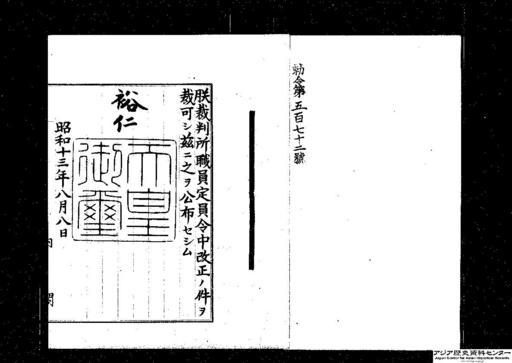 勅令第五百七十二號
朕裁判所職員定員令中改正ノ件ヲ
裁可シ茲ニ之ヲ公布セシム
裕仁
天皇
御璽
昭和十三年八月八日
内閣
アジア歴史資料センター
Japan Center for Asian Historical Records